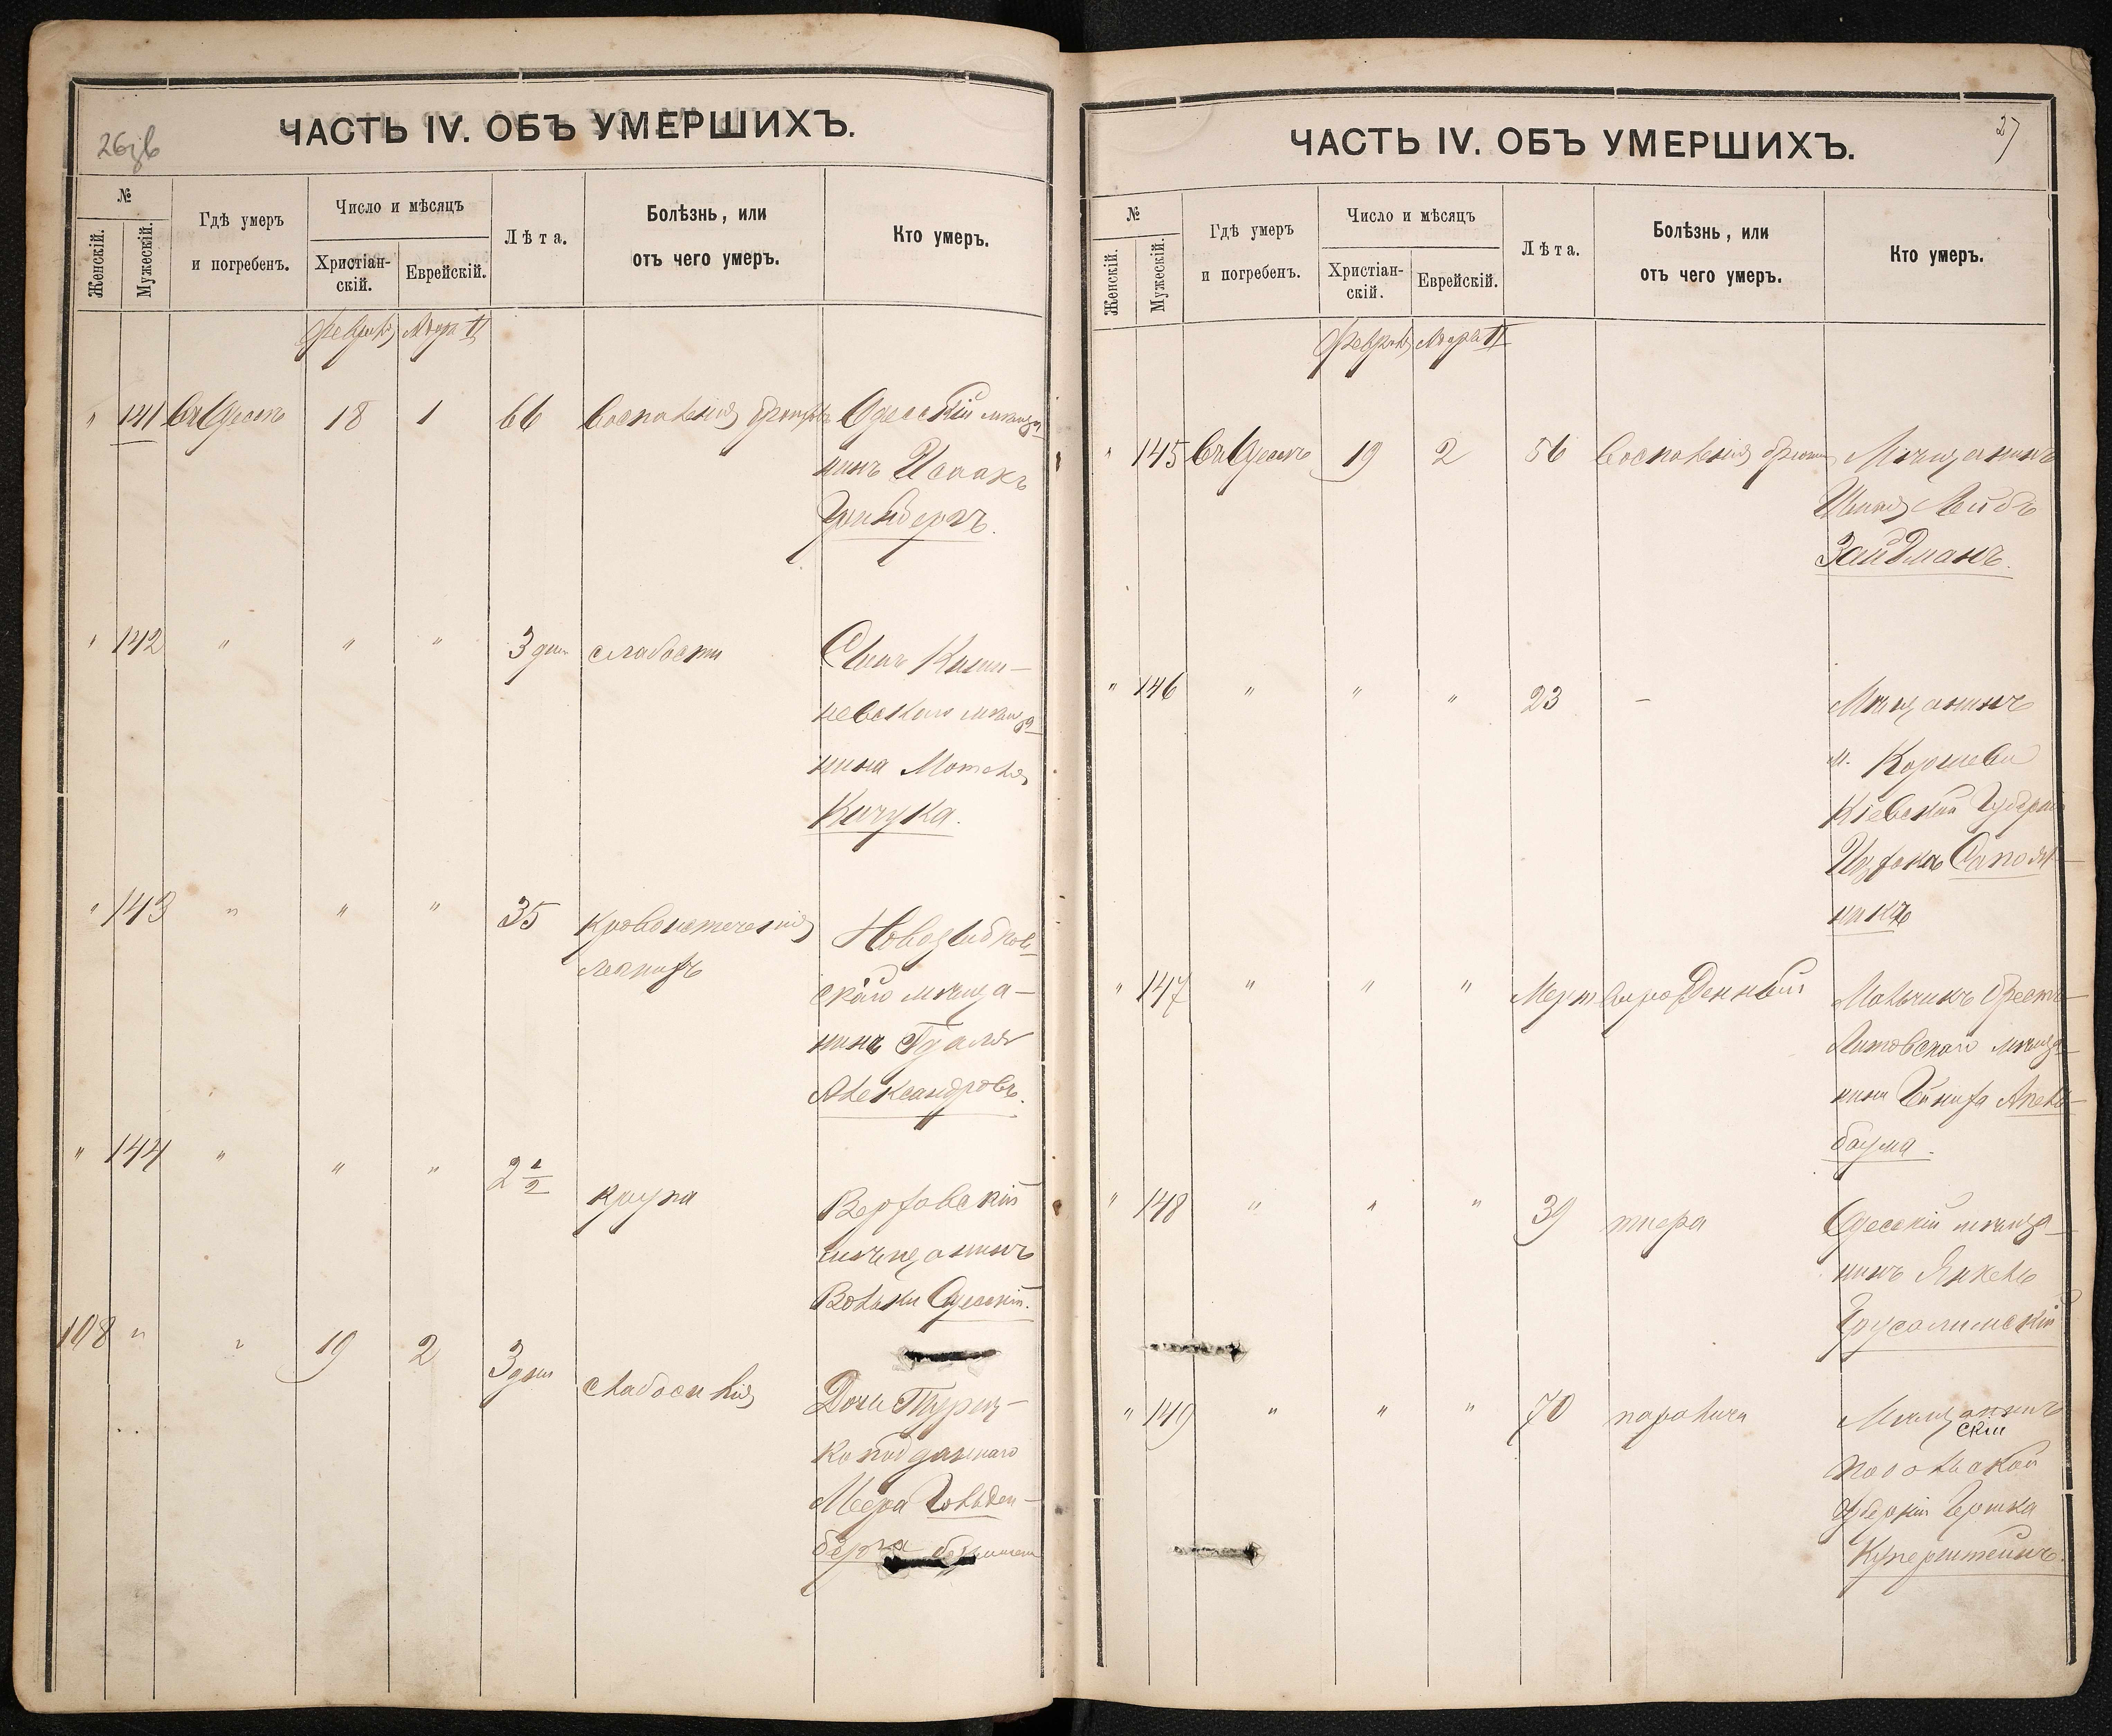 26зв
ЧАСТЬ IV. ОБЪ УМЕРШИХЪ.
№
Женскій.
Мужескій.
Гдѣ умеръ
и погребенъ.
Число и мѣсяцъ
Христіан-
скій.
Еврейскій.
Лѣта.
Болѣзнь, или
отъ чего умеръ.
Кто умеръ.
Адара II
" 141 въ Одессѣ 18 1 66 воспаленія Одесскій мѣща-
нинъ Исаакъ
Гринбергъ.
" 142 " " " 3 дня слабости Сынъ Киши-
невскаго мѣща-
нина Мотеля
Кичука.
" 143 " " " 35 кровоистеченія Новозыбков-
легкихъ скаго мѣща-
нинъ Гдалья
Александровъ.
" 144 " " " 2 1/2 крупа
мѣщанинъ
Вольки Одесскій.
108 " " 19 2 3 дня слабосилія Дочь Турец-
ко подданнаго
Меера Гольден-
берга
27
ЧАСТЬ IV. ОБЪ УМЕРШИХЪ.
№
Женскій.
Мужескій.
Гдѣ умеръ
и погребенъ.
Число и мѣсяцъ
Христіан-
скій.
Еврейскій.
Лѣта.
Болѣзнь, или
отъ чего умеръ.
Кто умеръ.
Адара II
" 145 въ Одессѣ 19 2 56 воспаленія Мѣщанинъ
Лейбъ
Зайдманъ.
" 146 " " " 23 – Мѣщанинъ
м.
Кіевской Губерніи
Сапож-
никъ
" 147 " " " Мертворожденный Мальчикъ Брестъ-
Литовскаго мѣща-
нина Апель-
баума.
" 148 " " " 39 тифа Одесскій мѣща-
нинъ Янкель
Ерусалимскій
" 149 " " " 70 паралича Мѣщанинъ
скій
Подольской
Губерніи Гершка
Куперштейнъ.